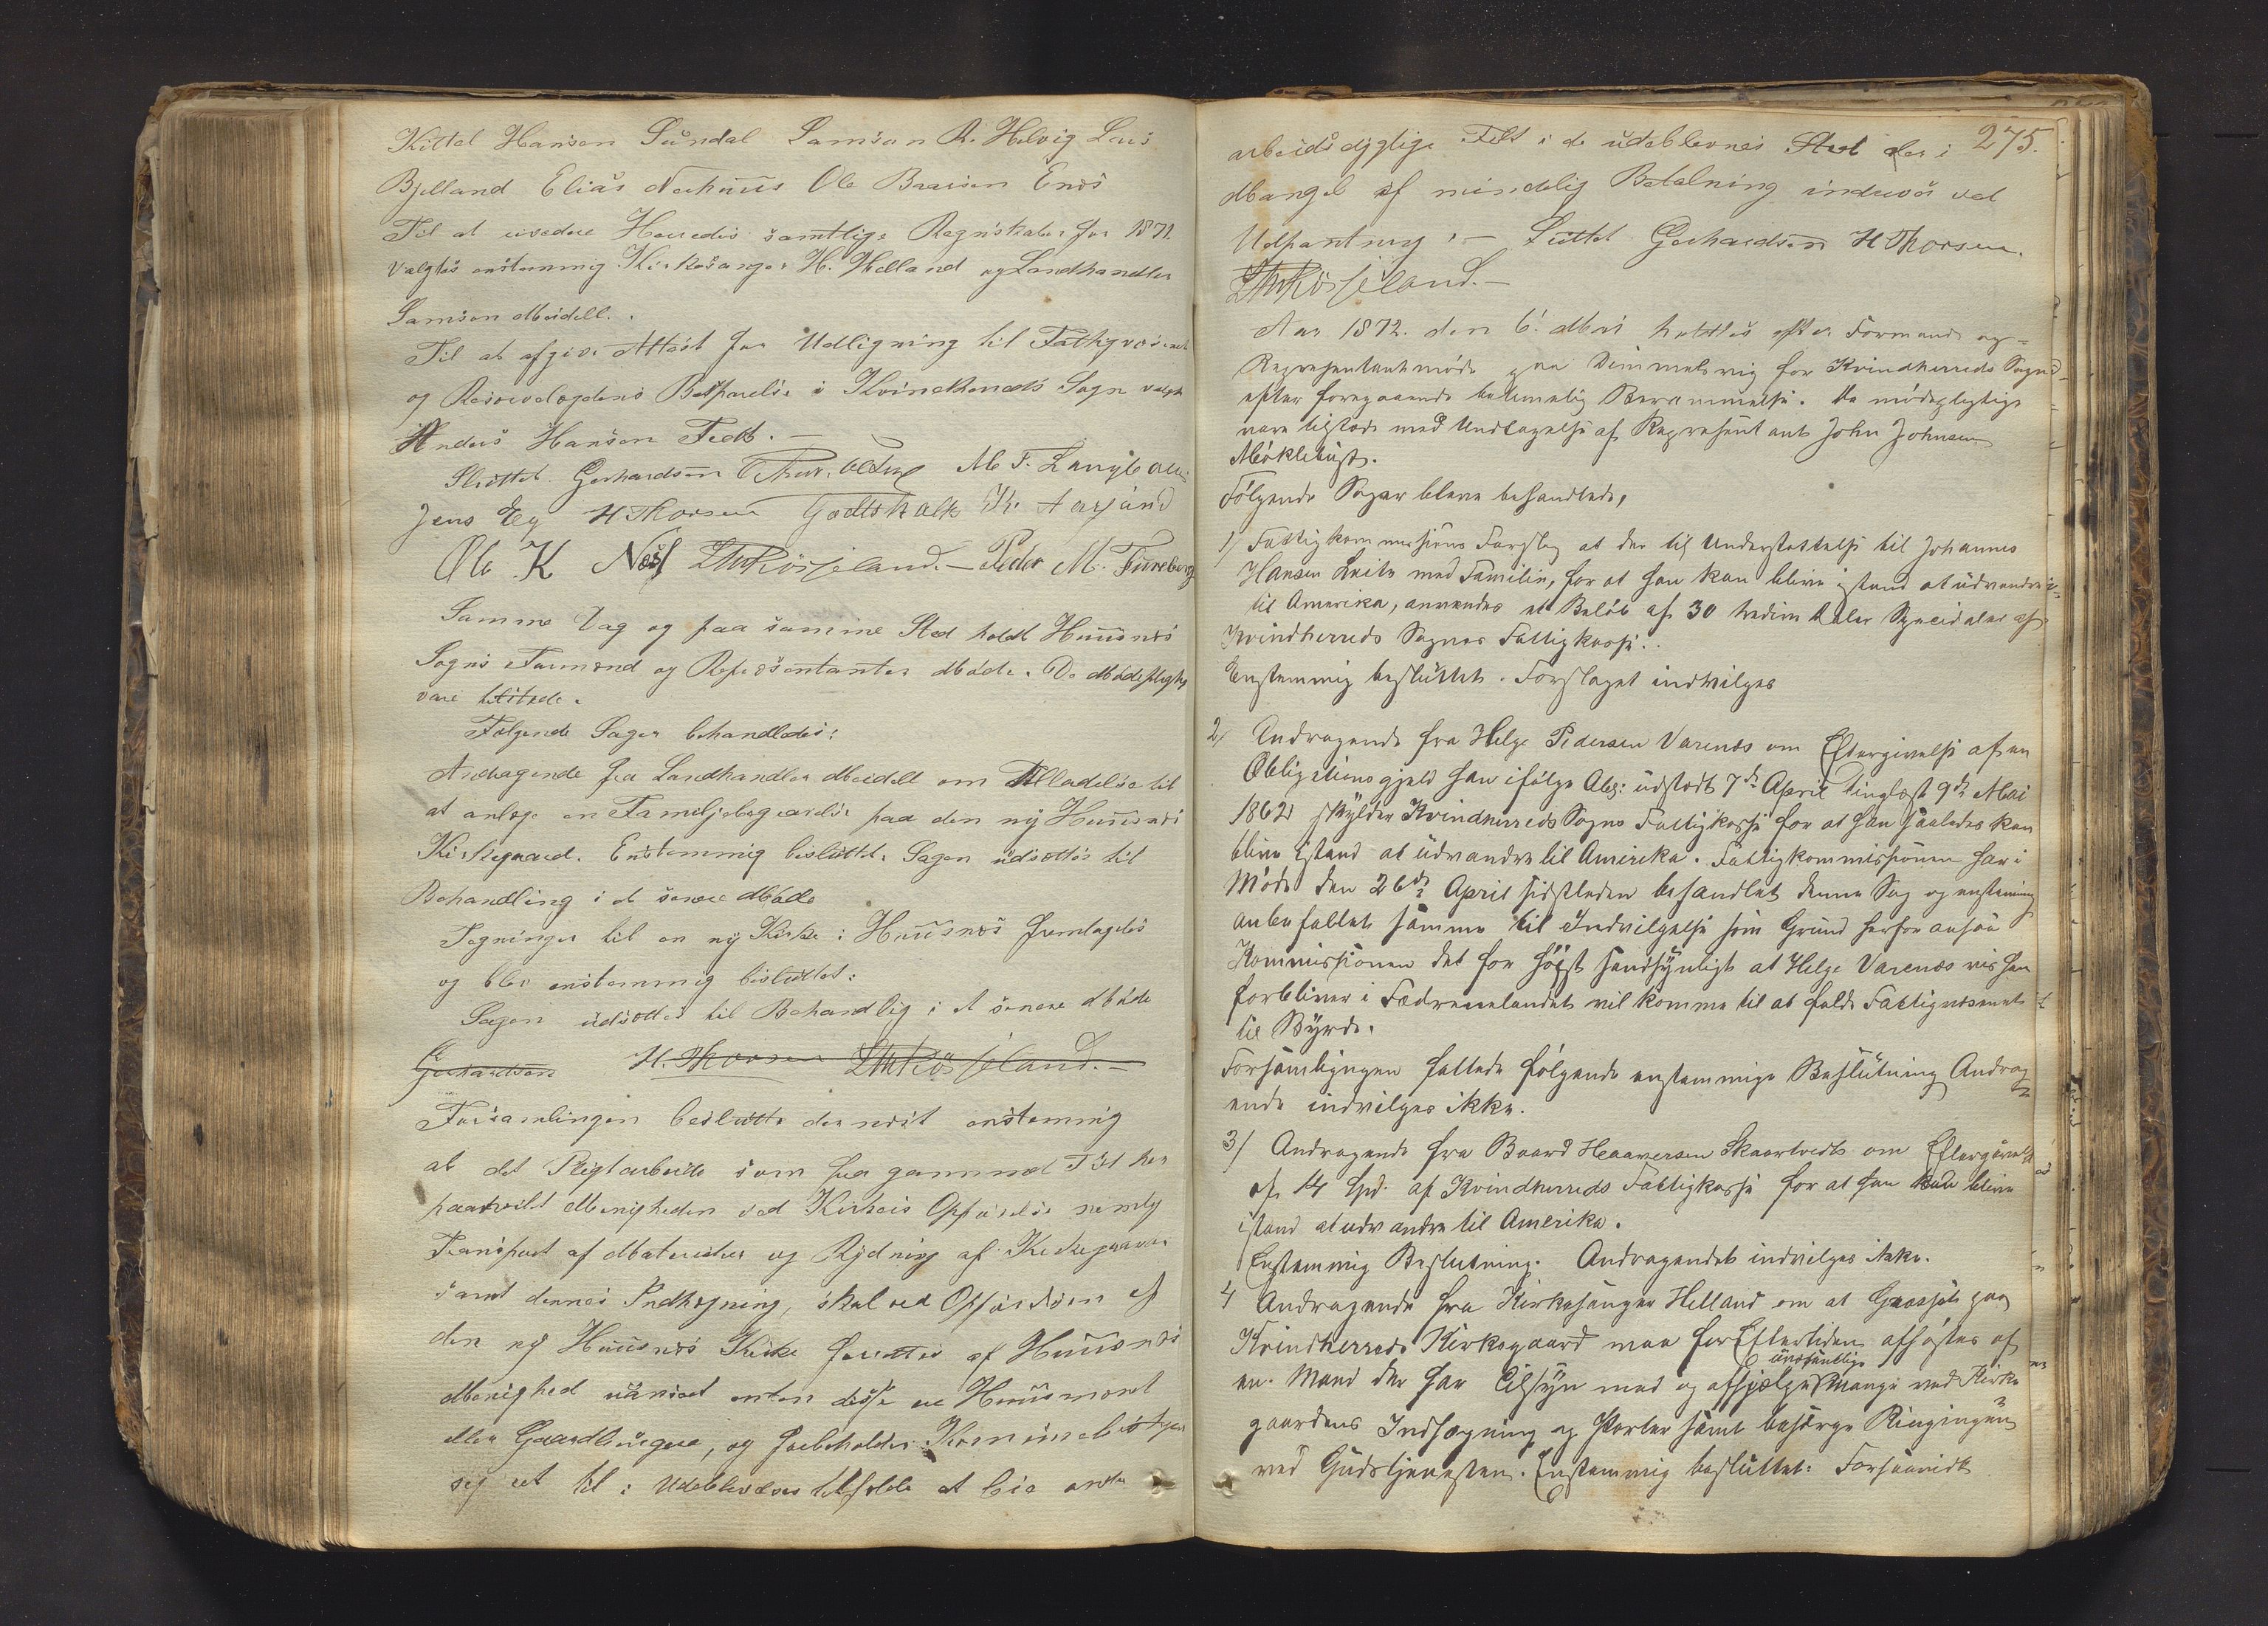 Kittel Hansen Sundal Samson A. Helvig Lars
Bjelland Elias Nerhuus Ole Baarsen Enæs
Til at revidere Herredis samtlige Regnskaber for 1871.
valgtes enstemmig Kirkesanger H. Helland og Landhandler
Samson Meidell.
Til at afgive Attest for Udligning til Fattigvæsenet
og Reisevelægdens Besparelse i Kvindherreds Sogn valgtes
Anders Hansen Fedt. —
Sluttet. Gerhardsen M. T. Langballe
Jens Eeg H Thorsen Godtskalk K.
Ole K Næss Peder M. Fureberg
Samme Dag og paa samme Sted holdt Huusnæs
Sogns Formænd og Repræsentanter Møde. De Mødepligtige
vare tilstede.
Følgende Sager behandledes:
Andragende fra Landhandler Meidell om Tilladelse til
at anlæge en Familjebegravelse paa den ny Huusnæs
Kirkegaard. Enstemmig besluttet. Sagen udsættes til
Behandling i et senere Møde
Tegninger til en ny Kirke i Huusnæs fremlagdes
og blev enstemmig besluttet:
Sagen udsættes til Behandlig i et senere Møde
Gerhardsen H. Thorsen
Forsamlingen beslutte dernæst enstemmig
at det Pligtarbeide som fra gammel Tid har
paahvilt Menigheden ved Kirkers Opførelse nemlig
Transport af Materialier og Rydning af Kirkegaarden
samt dennes Indhegning, skal ved Opførelsen af
den ny Huusnæs Kirke forrettes af Huusnæs
Menighed uanseet enten disse ere Huusmænd
eller Gaardbrugere, og forbeholder Kommunebestyrer
sig ret til i Udeblivelses tilfælde at leie andre
275.
arbeidsdygtige Folk i de udeblevnes Sted der i
Mangel af mindelig Betalning inddrives ved
Udpantning. — Sluttet Gerhardsen H Thorsen.
Aar 1872. den 6. Mai holdtes efter Formands og
Repræsentantmøde paa Dimmelsvig for Kvindherreds Sogn
efter foregaaende belimelig Berammelse. De mødepligtige
vare tilstede med Undtagelse af Repræsentant John Johnsen
Møklebust.
Følgende Sager bleve behandlede,
1/ Fattigkommissions Forslag at der til Understøttelse til Johannes
Hansen Leite med Familie, for at han kan blive istand at udvandre
til Amerika, anvendes et Beløb af 30 tredive Daler Speciedaler af
Kvindherreds Sognes Fattigkasse.
Enstemmig besluttet. Forslaget indvilges
2/ Andragende fra Helge Pedersen Varenæs om Eftergivelse af en
Obligationsgjæld han ifølge Obg: udstedt 7de April tinglæst 9de Mai
1862 skylder Kvindherreds Sogns Fattigkasse for at han saaledes kan
blive istand at udvandre til Amerika. Fattigkommissionen har i
Møde den 26de April sidstleden behandlet denne Sag og enstemmig
anbefallet samme til Indvilgelse som Grund herfor ansaa
Kommissionen det for høgst sandsynligt at Helge Varenæs vis han
forbliver i Fædrenelandet vil komme til at falde Fattigvæsenet
til Byrde.
Forsamlingen fattede følgende enstemmige Beslutning Andrag
ende indvilges ikke.
3/ Andragende fra Baard Haaversen Skaartvedt om Eftergivelse
af 14 Spd. af Kvindherreds Fattigkasse for at han kan blive
istand at udvandre til Amerika.
Enstemmig Beslutning. Andragendet indvilges ikke.
4 Andragende fra Kirkesanger Helland om at Græsset paa
Kvindherreds Kirkegaard maa for Eftertiden afhøstes af
uvæsentlige
en Mand der har Tilsyn med og afhjælpe Mangler ved Kirke
gaardens Indhegning og Porter samt besørge Ringingen
ved Gudstjenesten. Enstemmig besluttet: Forsaavidt